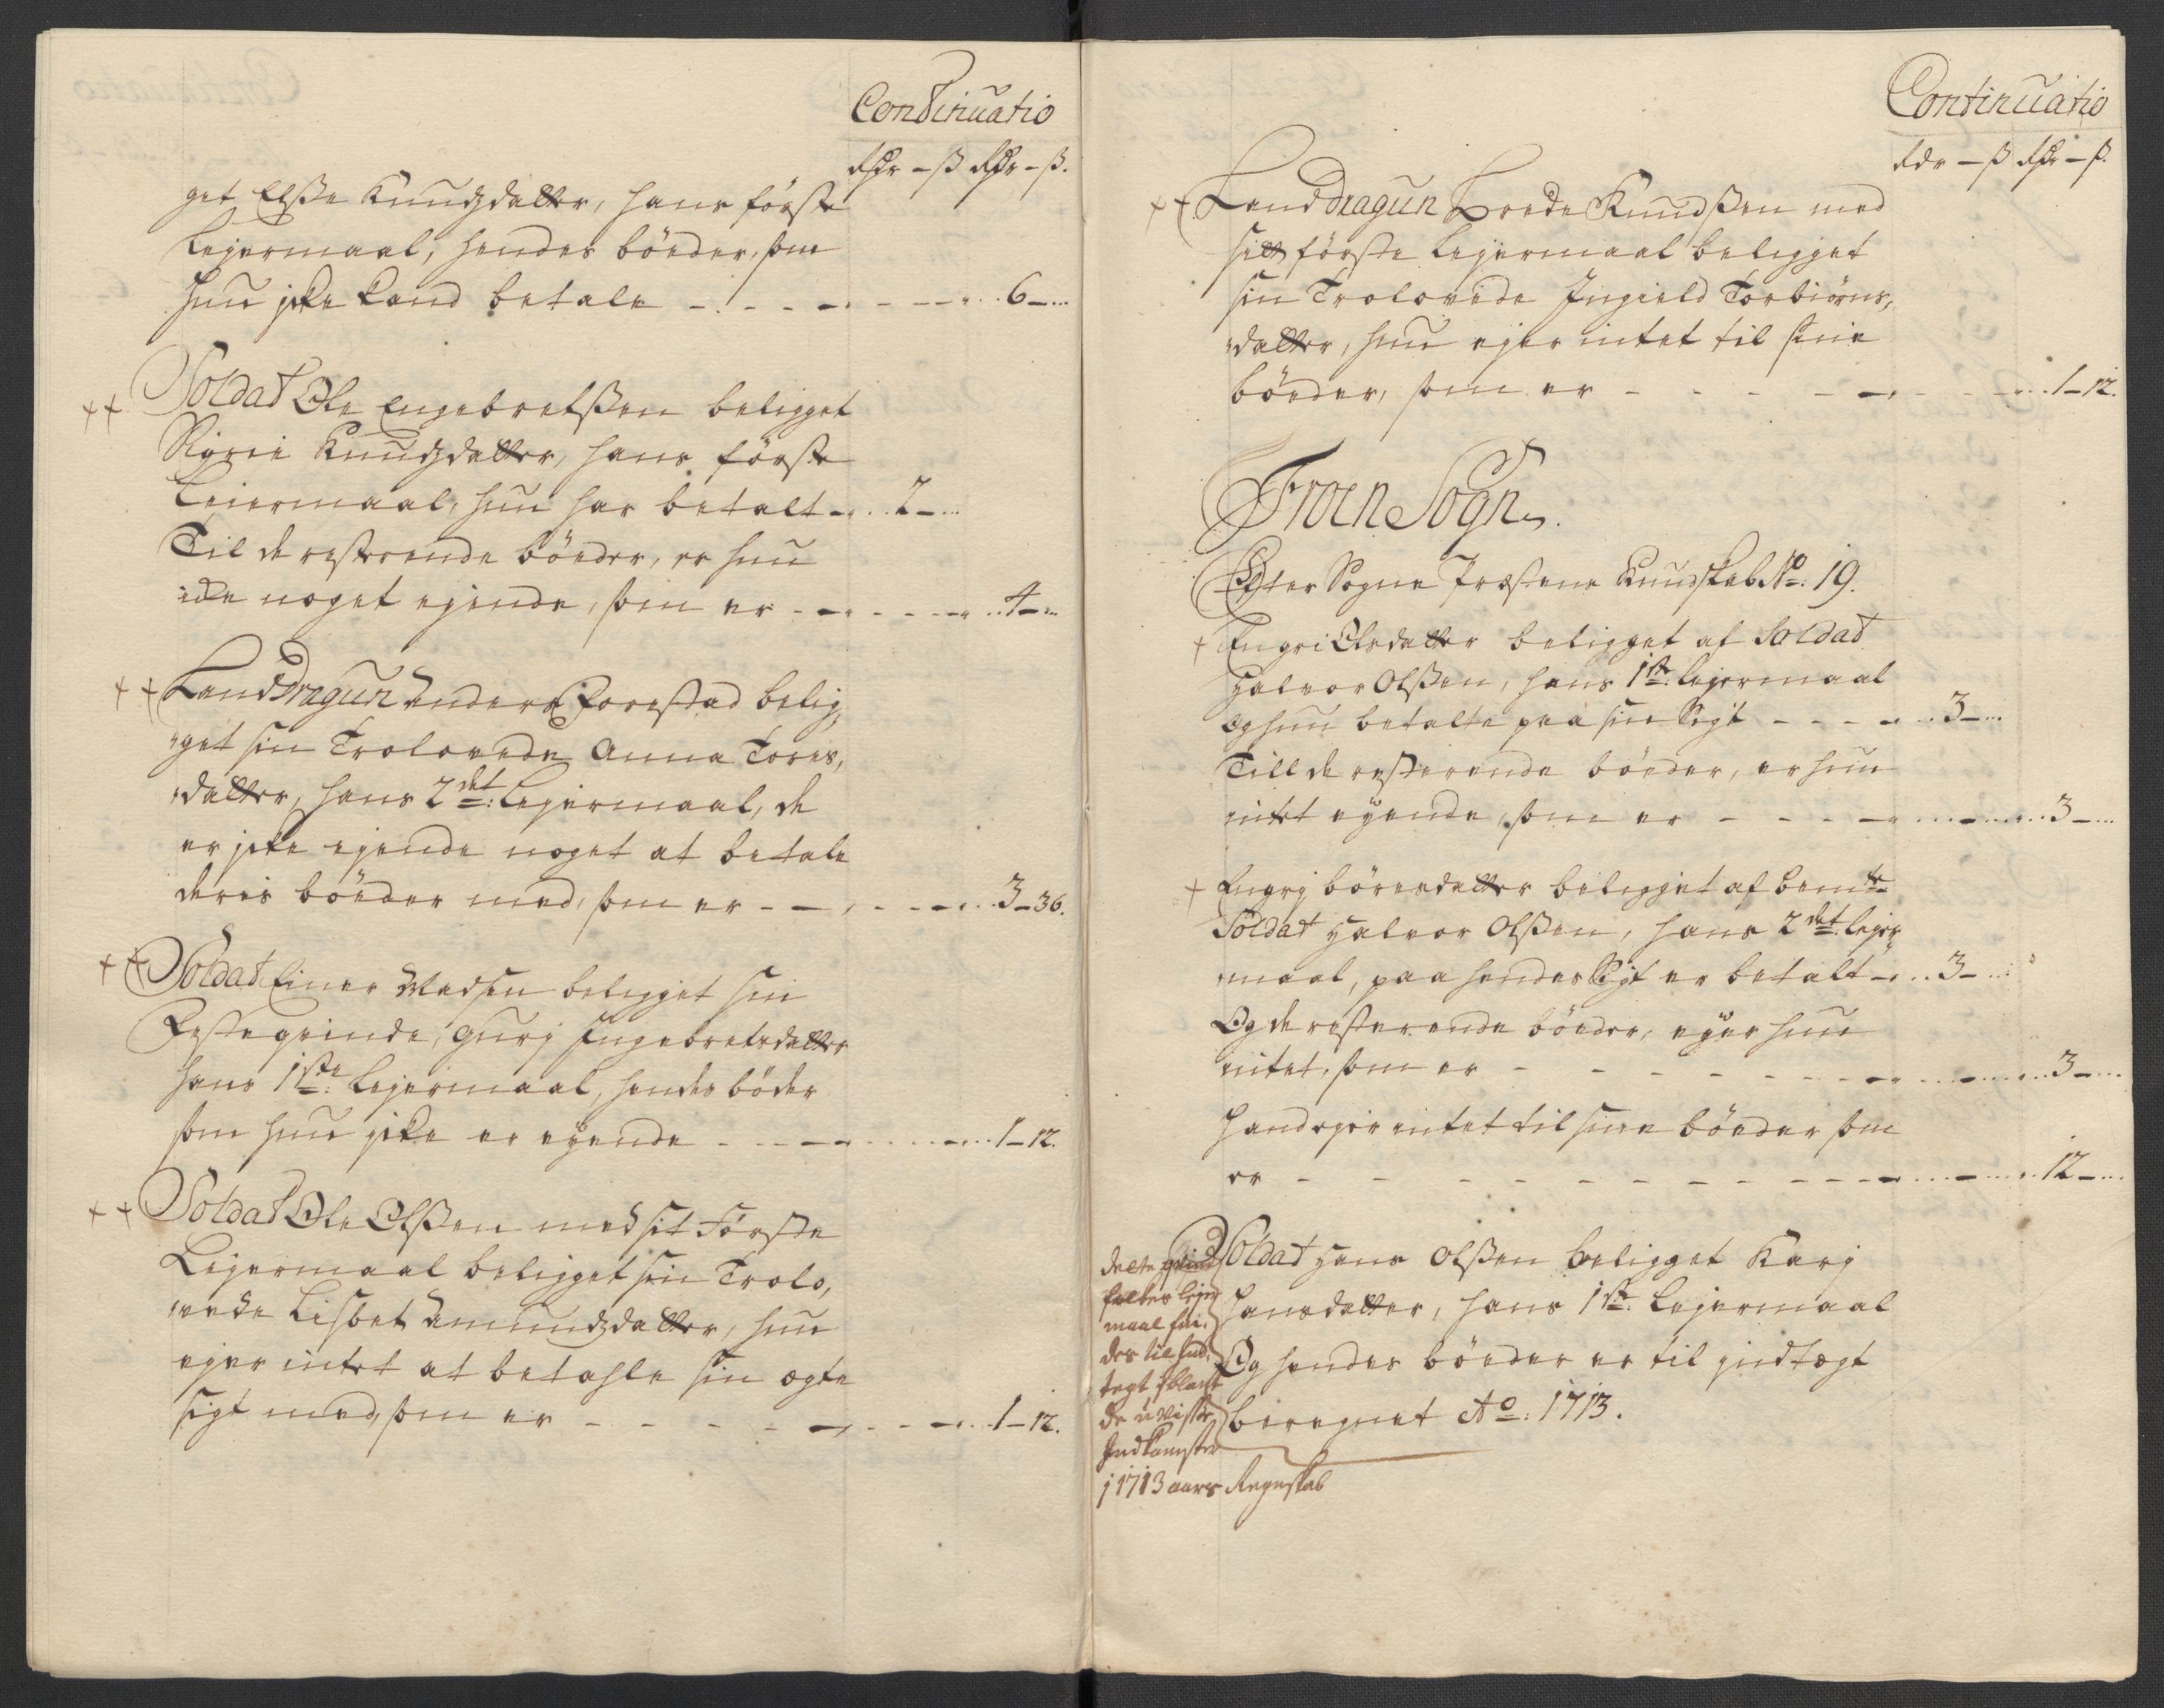 Continuatio
Rdr - ß Rdr - ß.
get Elsse Knudzdatter, hans første
Lejermaal, hendes bøeder, som
hun icke kand betale - - - - - 6 - ...
†† Soldat Ole Engebretssen beligget
Sigrie Knudzdatter, hans første
Leiermaal, hun har betalt - .. 2 - ...
Til de resterende bøeder, er hun
icke noget ejende, som er - - - - - 4 - ...
†† Land Dragun Anders Forestad belig,
„get sin Trolovede Anna Tores,
„datter, hans 2det: Lejermaal, de
er icke ejende noget at betale
deris bøeder med, som er - - - - 3 - 36.
†† Soldat Einer Madsen beligget sin
Festeqvinde, Gurj Ingebretsdatter
hans 1ste: Lejermaal, hendes bøder
som hun icke er eyende - - - - - 1 - 12.
†† Soldat Ole Olssen med sit Første
Lejermaal beligget sin Trolo,
„vede Lisbet Amundzdatter, hun
ejer intet at betahle sin ægte
sigt med, som er - - - - - - 1 - 12.
Continuatio
Rdr - ß Rdr - ß.
†† Land Dragun Knudssen med
sitt første Lejermaal beligget
sin Trolovede Ingield Torbiørns,
„datter, hun ejer intet til sine
bøeder, som er - - - - - - 1 - 12.
Froen Sogn.
Efter Sogne Præstens Kundskab No: 19.
† Engri Olsdatter beligget af Soldat
Halvor Olssen, hans 1ste: Lejermaal
og hun betalte paa sin Sigt - - - - 3 - ...
Till de resterende bøeder, er hun
intet eyende, som er - - - - - - 3 - ...
† Engrj børesdatter beligget af bemte
Soldat Halvor Olssen, hans 2det Lejer,
„maal, paa hendes Sigt er betalt - .. 3 - ...
Og de resterende bøeder, eyer hun
intet, som er - - - - - - - 3 - ...
Hand ejer intet til sine bøeder som
er - - - - - - - - - 12 - ...
Soldat Hans Olssen beligget Karj
Hansdatter, hans 1ste: Lejermaal
Og hendes bøeder er til jndtægt
beregnet Ao: 1713.
dette qvind
folkes lejer
maal fin,
des til Ind,
tegt iblant
de uvisse
Indkomster
j 1713 aars Regnskab